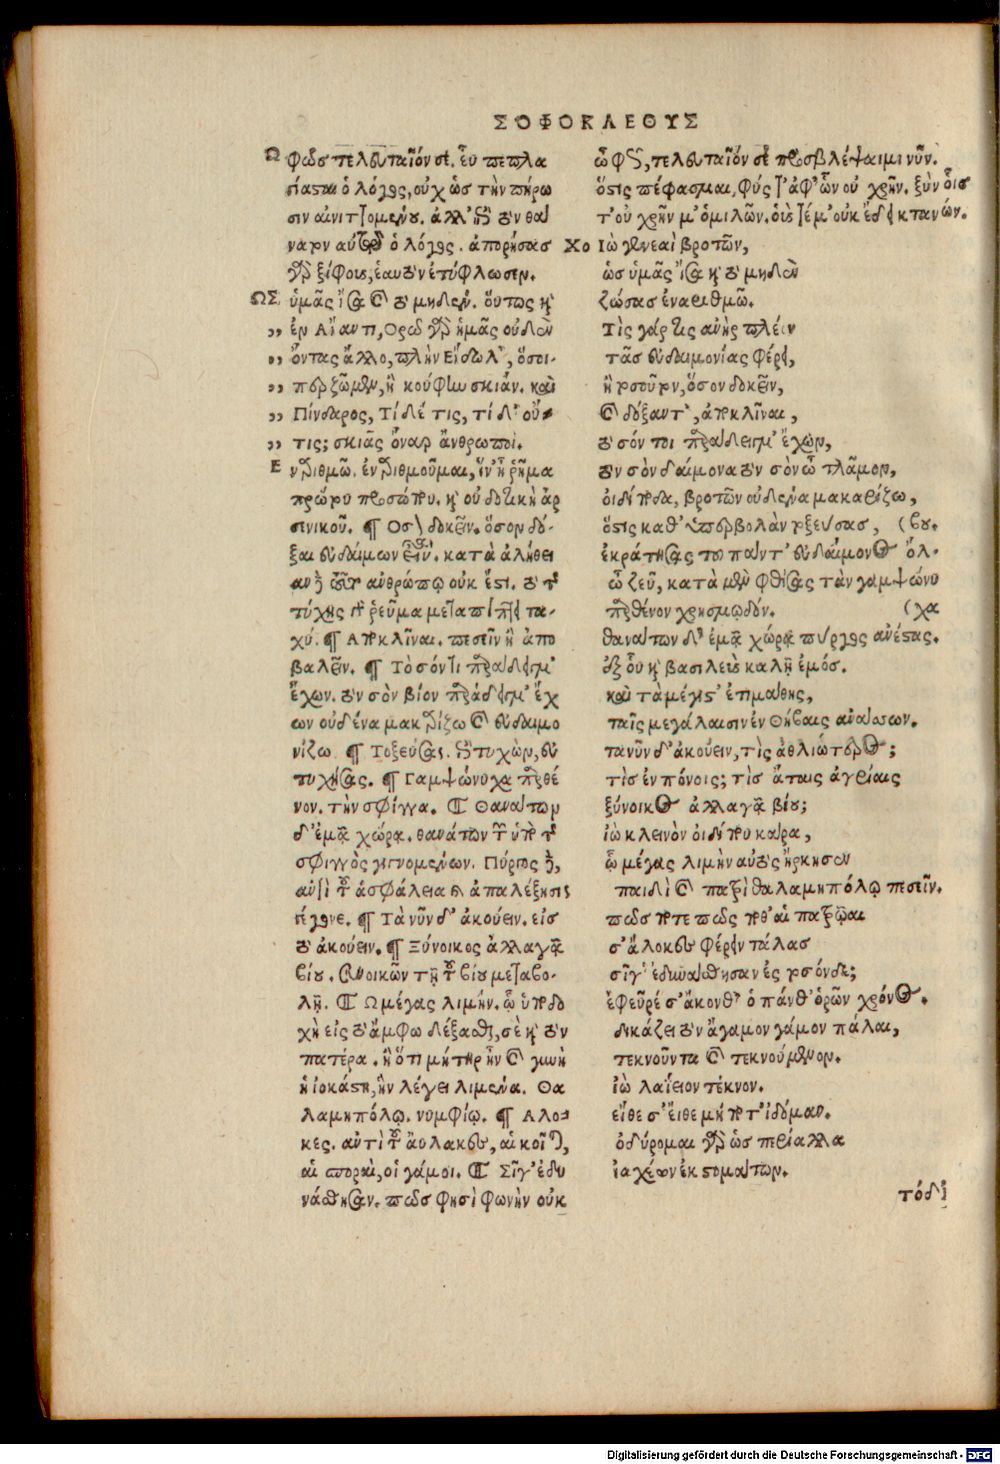 ΣΟΦΟΚΛΕΟΥΣ
Ω φῶς τελευταῖόν σε. εὖ πέπλα
σίασται ὁ λόγος, οὐχ ὡς τὴν πήρω
σιν αἰνιττομένου. ἀλλ' ἐπὶ τὸν θαί
ναρον αὐτοῦ ὁ λόγος. ἀπορήσας
γὰρ ξίφους, ἑαυτὸν ἐτύφλωσεν.
ΩΣ ὑμᾶς ἴσα καὶ τὸ μηδέν. οὕτως καὶ
,, ἐν Αἴαντι, Ορῶ γὰρ ἡμᾶς οὐδὲν
,, ὄντας ἄλλο, πλὴν Εἴδωλ', ὅσοι-
,, περ ζῶμεν, ἢ κούφην σκιάν. καὶ
,, Πίνδαρος, Τί δέ τις, τί δ' οὔ-
,, τις; σκιᾶς ὄναρ ἄνθρωποι.
Ε ναριθμῶ. ἐναριθμοῦμαι, ἵν' ᾖ ῥῆμα
πρώτου προσώπου. καὶ οὐ δοτικὴ ἀρ
σενικοῦ. ¶ Οσον δοκεῖν. ὅσον δό-
ξαι εὐδαίμων εἶναι. κατὰ ἀλήθει
αν δὲ τῶν ἀνθρώπῳ οὐκ ἔστι. τὸ τῆς
τύχης γὰρ ῥεῦμα μεταπίπτει τα-
χύ. ¶ Αποκλῖναι. πεσεῖν ἢ ἀπο
βαλεῖν. ¶ Τὸ σόν τι παράδειγμ'
ἔχων. τὸν σὸν βίον παράδειγμ' ἔχ
ων οὐδένα μακαρίζω καὶ εὐδαιμο
νίζω. ¶ Τοξεύσας. ἐπιτυχὼν, εὐ
τυχήσας. ¶ Γαμψώνυχα παρθέ
νον. τὴν σφίγγα. ¶ Θανάτων
δ' ἐμᾷ χώρᾳ. θανάτων τῶν ὑπὸ τῆς
σφιγγὸς γιγνομένων. Πύργος δὲ,
ἀντὶ τοῦ ἀσφάλεια καὶ ἀπαλέξησις
γέγονε. ¶ Τὰ νῦν δ' ἀκούειν. εἰς
τὸ ἀκούειν. ¶ Ξύνοικος ἀλλαγᾷ
βίου. συνοικῶν τῇ τοῦ βίου μεταβο-
λῇ. ¶ Ω μέγας λιμήν. ᾧ ὑποδο
χὴ εἰς τὸ ἄμφω δέξασθαι, σὲ καὶ τὸν
πατέρα. ἢ ὅτι μήτηρ ἦν καὶ γυνὴ
ἡ ἰοκάστη, ἣν λέγει λιμένα. Θα
λαμηπόλῳ. νυμφίῳ. ¶ Αλο-
κες. ἀντὶ τοῦ ἄυλακες, αἱ κοῖται,
αἱ σποραὶ, οἱ γάμοι. ¶ Σῖγ' ἐδυ
νάθησαν. πῶς φησὶ φωνὴν οὐκ
ὦ φῶς, τελευταῖόν σε προσβλέψαιμι νῦν.
ὅστις πέφασμαι, φύς τ' ἀφ' ὧν οὐ χρῆν. ξὺν οἷς
τ' οὐ χρῆν μ' ὁμιλῶν. οὕς τέ μ' οὐκ ἔδει κτανών.
Χο Ιὼ γενεαὶ βροτῶν,
ὡς ὑμᾶς ἴσα καὶ τὸ μηδὲν
ζώσας ἐναριθμῶ.
Τὶς γάρ τις ἀνὴρ πλέιν
τᾶς εὐδαιμονίας φέρει,
ἢ τοσοῦτον, ὅσον δοκεῖν,
καὶ δόξαντ', ἀποκλῖναι,
τὸ σόν τοι παράδειγμ' ἔχων,
τὸν σὸν δαίμονα τὸν σὸν ὦ τλᾶμον,
οἰδιπόδα, βροτῶν οὐδένα μακαρίζω,
ὅστις καθ' ὑπερβολὰν τοξεύσας, (βου.
ἐκράτησας τοῦ πάντ' εὐδαίμονος ὄλ-
ὦ ζεῦ, κατὰ μὲν φθίσας τὰν γαμψώνυ
παρθένον χρησμῳδόν. (χα
θανάτων δ' ἐμᾷ χώρᾳ πύργος ἀνέστας.
ἐξ οὗ καὶ βασιλεὺς καλῇ ἐμός.
καὶ τὰ μέγιστ' ἐτιμάθης,
ταῖς μεγάλαισιν ἐν Θήβαις ἀνάσσων.
τανῦν δ' ἀκούειν, τὶς ἀθλιώτερος;
τὶς ἐν πόνοις; τὶς ἄταις ἀγρίαις
ξύνοικος ἀλλαγᾷ βίου;
ἰὼ κλεινὸν οἰδίπου κάρα,
ᾧ μέγας λιμὴν αὐτὸς ἤρκησεν
παιδὶ καὶ πατρὶ θαλαμηπόλῳ πεσεῖν.
πῶς ποτε πῶς ποθ' αἱ πατρῷαι
σ' ἄλοκες φέρειν τάλας
σῖγ' ἐδυνάθησαν ἐς τοσόνδε;
ἐφεῦρέ σ' ἄκονθ' ὁ πάνθ' ὁρῶν χρόνος.
δικάζει τὸν ἄγαμον γάμον πάλαι,
τεκνοῦντα καὶ τεκνούμενον.
ἰὼ λαΐειον τέκνον.
εἴθε σ' εἴθε μή ποτ' ἰδόμαν.
ὀδύρομαι γὰρ ὡς περίαλλα
ἰαχέων ἐκ στομάτων.
τόδ'
Digitalisierung gefördert durch die Deutsche Forschungsgemeinschaft - DFG